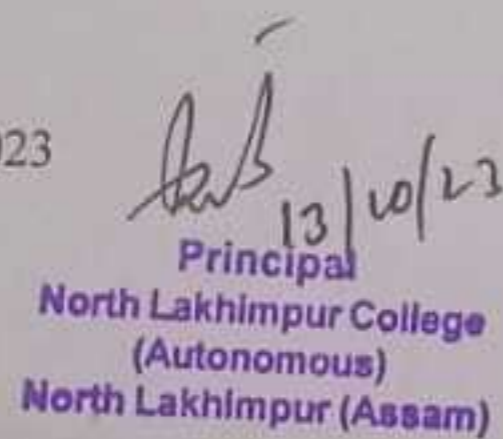 023
13/10/23
Principal
North Lakhimpur College
(Autonomous)
North Lakhimpur (Assam)